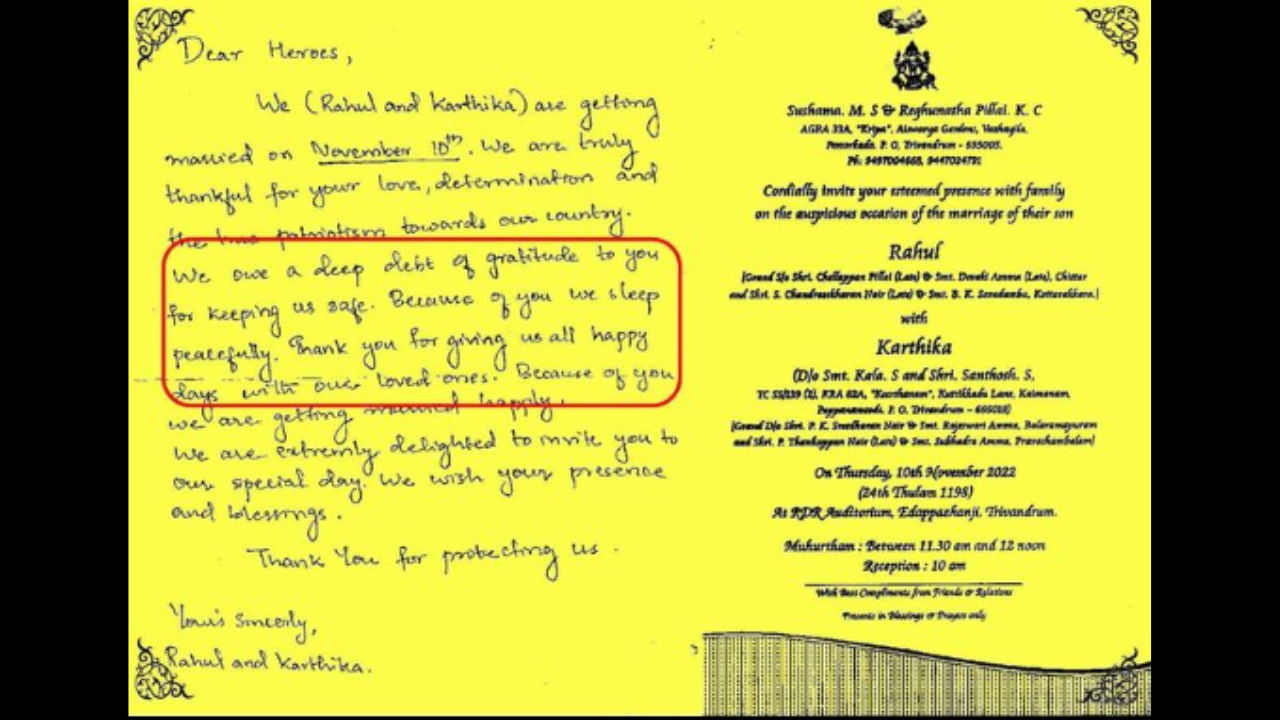 Dear Heroes,
We (Rahul and Karthika) are getting
married on November 10th. We are truly
thankful for your love, determination and
the true patriotism towards our country.
We owe a deep debt of gratitude to you
for keeping us safe. Because of you we sleep
peacefully. Thank you for giving us all happy
days with our loved ones. Because of you
we are getting married happily.
We are extremly delighted to invite you to
our special day. We wish your presence
and blessings.
Thank You for protecting us.
Your's Sincerly,
Rahul and Karthika.
Sushama. M. S & Reghunatha Pillai. K. C
AGRA 33A, "Kripa", Gardens,
P. O, Trivandrum - 695005.
Ph: 9447024791
Cordially invite your esteemed presence with family
on the auspicious occasion of the marriage of their son
Rahul
[Grand S/o Shri. Chellappan Pillai (Late) & Smt. Devaki Amma (Late), Chitar
and Shri. S. Chandrasekharan Nair (Late) & Smt. B. K. Saradamba, Kottarakkara.]
with
Karthika
(D/o Smt. Kala. S and Shri. Santhosh. S,
TC 55/239 (2), KRA 62A, Lane, Kaimanam,
Pappanamcode. P. O, Trivandrum - 695018)
[Grand D/o Shri. P. K. Sreedharan Nair & Smt. Rajeswari Amma, Balaramapuram
and Shri. P. Thankappan Nair (Late) & Smt. Subhadra Amma, Pravachambalam]
On Thursday, 10th November 2022
(24th Thulam 1198)
At RDR Auditorium, Edappazhanji, Trivandrum.
Muhurtham : Between 11.30 am and 12 noon
Reception : 10 am
With Best Compliments from Friends & Relations
Presents in Blessings & Prayers only